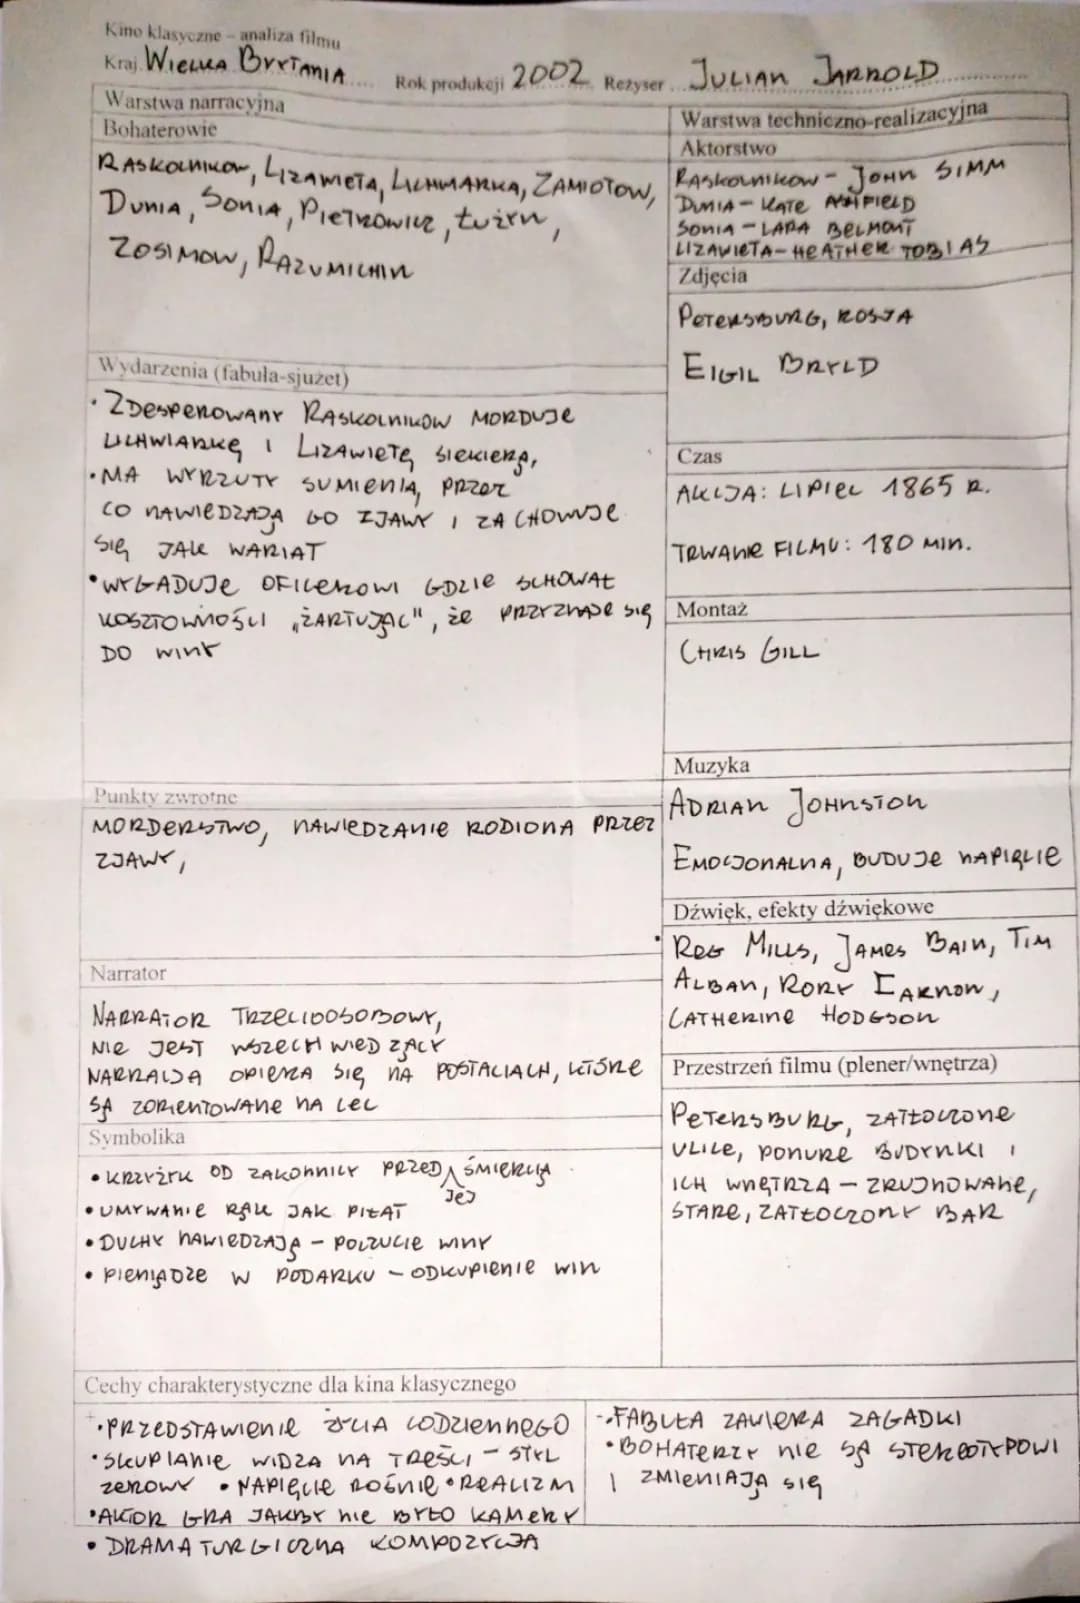 Kino klasyczne – analiza filmu
Kraj WIELKA BRYTANIA Rok produkcji 2002 Reżyser JULIAN JARROLD
Warstwa narracyjna
Bohaterowie
RASKOLNIKOW, LIZAWIETA, LICHWIARKA, ZAMIOTOW,
DUNIA, SONIA, PIETROWICZ, ŁUŻYN,
ZOSIMOW, RAZUMICHIN
Wydarzenia (fabuła-sjużet)
• ZDESPEROWANY RASKOLNIKOW MORDUJE
LICHWIARKĘ I LIZAWIETĘ SIEKIERĄ,
• MA WYRZUTY SUMIENIA, PRZEZ
CO NAWIEDZAJĄ GO ZJAWY I ZACHOWUJE
SIĘ JAK WARIAT
• WYGADUJE OFICEROWI GDZIE SCHOWAŁ
KOSZTOWNOŚCI „ŻARTUJĄC", ŻE PRZYZNAJE SIĘ
DO WINY
Punkty zwrotne
MORDERSTWO, NAWIEDZANIE RODIONA PRZEZ
ZJAWY,
Narrator
NARRATOR TRZECIOOSOBOWY,
NIE JEST WSZECHWIEDZĄCY
NARRACJA OPIERA SIĘ NA POSTACIACH, KTÓRE
SĄ ZORIENTOWANE NA CEL
Symbolika
• KRZYŻYK OD ZAKONNICY PRZED JEJ ŚMIERCIĄ
• UMYWANIE RĄK JAK PIŁAT
• DUCHY NAWIEDZAJĄ – POCZUCIE WINY
• PIENIĄDZE W PODARKU – ODKUPIENIE WIN
Warstwa techniczno-realizacyjna
Aktorstwo
RASKOLNIKOW – JOHN SIMM
DUNIA – KATE ASHFIELD
SONIA – LARA BELMONT
LIZAVIETA – HEATHER TOBIAS
Zdjęcia
PETERSBURG, ROSJA
EIGIL BRYLD
Czas
AKCJA: LIPIEC 1865 R.
TRWANIE FILMU: 180 MIN.
Montaż
CHRIS GILL
Muzyka
ADRIAN JOHNSTON
EMOCJONALNA, BUDUJE NAPIĘCIE
Dźwięk, efekty dźwiękowe
• REG MILLS, JAMES BAIN, TIM
ALBAN, RORY EARNON,
CATHERINE HODGSON
Przestrzeń filmu (plener/wnętrza)
PETERSBURG, ZATŁOCZONE
ULICE, PONURE BUDYNKI I
ICH WNĘTRZA – ZRUJNOWANE,
STARE, ZATŁOCZONY BAR
Cechy charakterystyczne dla kina klasycznego
• PRZEDSTAWIENIE ŻYCIA CODZIENNEGO
• SKUPIANIE WIDZA NA TREŚCI – STYL
ZEROWY • NAPIĘCIE ROŚNIE • REALIZM
• AKTOR GRA JAKBY NIE BYŁO KAMERY
• DRAMATURGICZNA KOMPOZYCJA
• FABUŁA ZAWIERA ZAGADKI
• BOHATERZY NIE SĄ STEREOTYPOWI
I ZMIENIAJĄ SIĘ